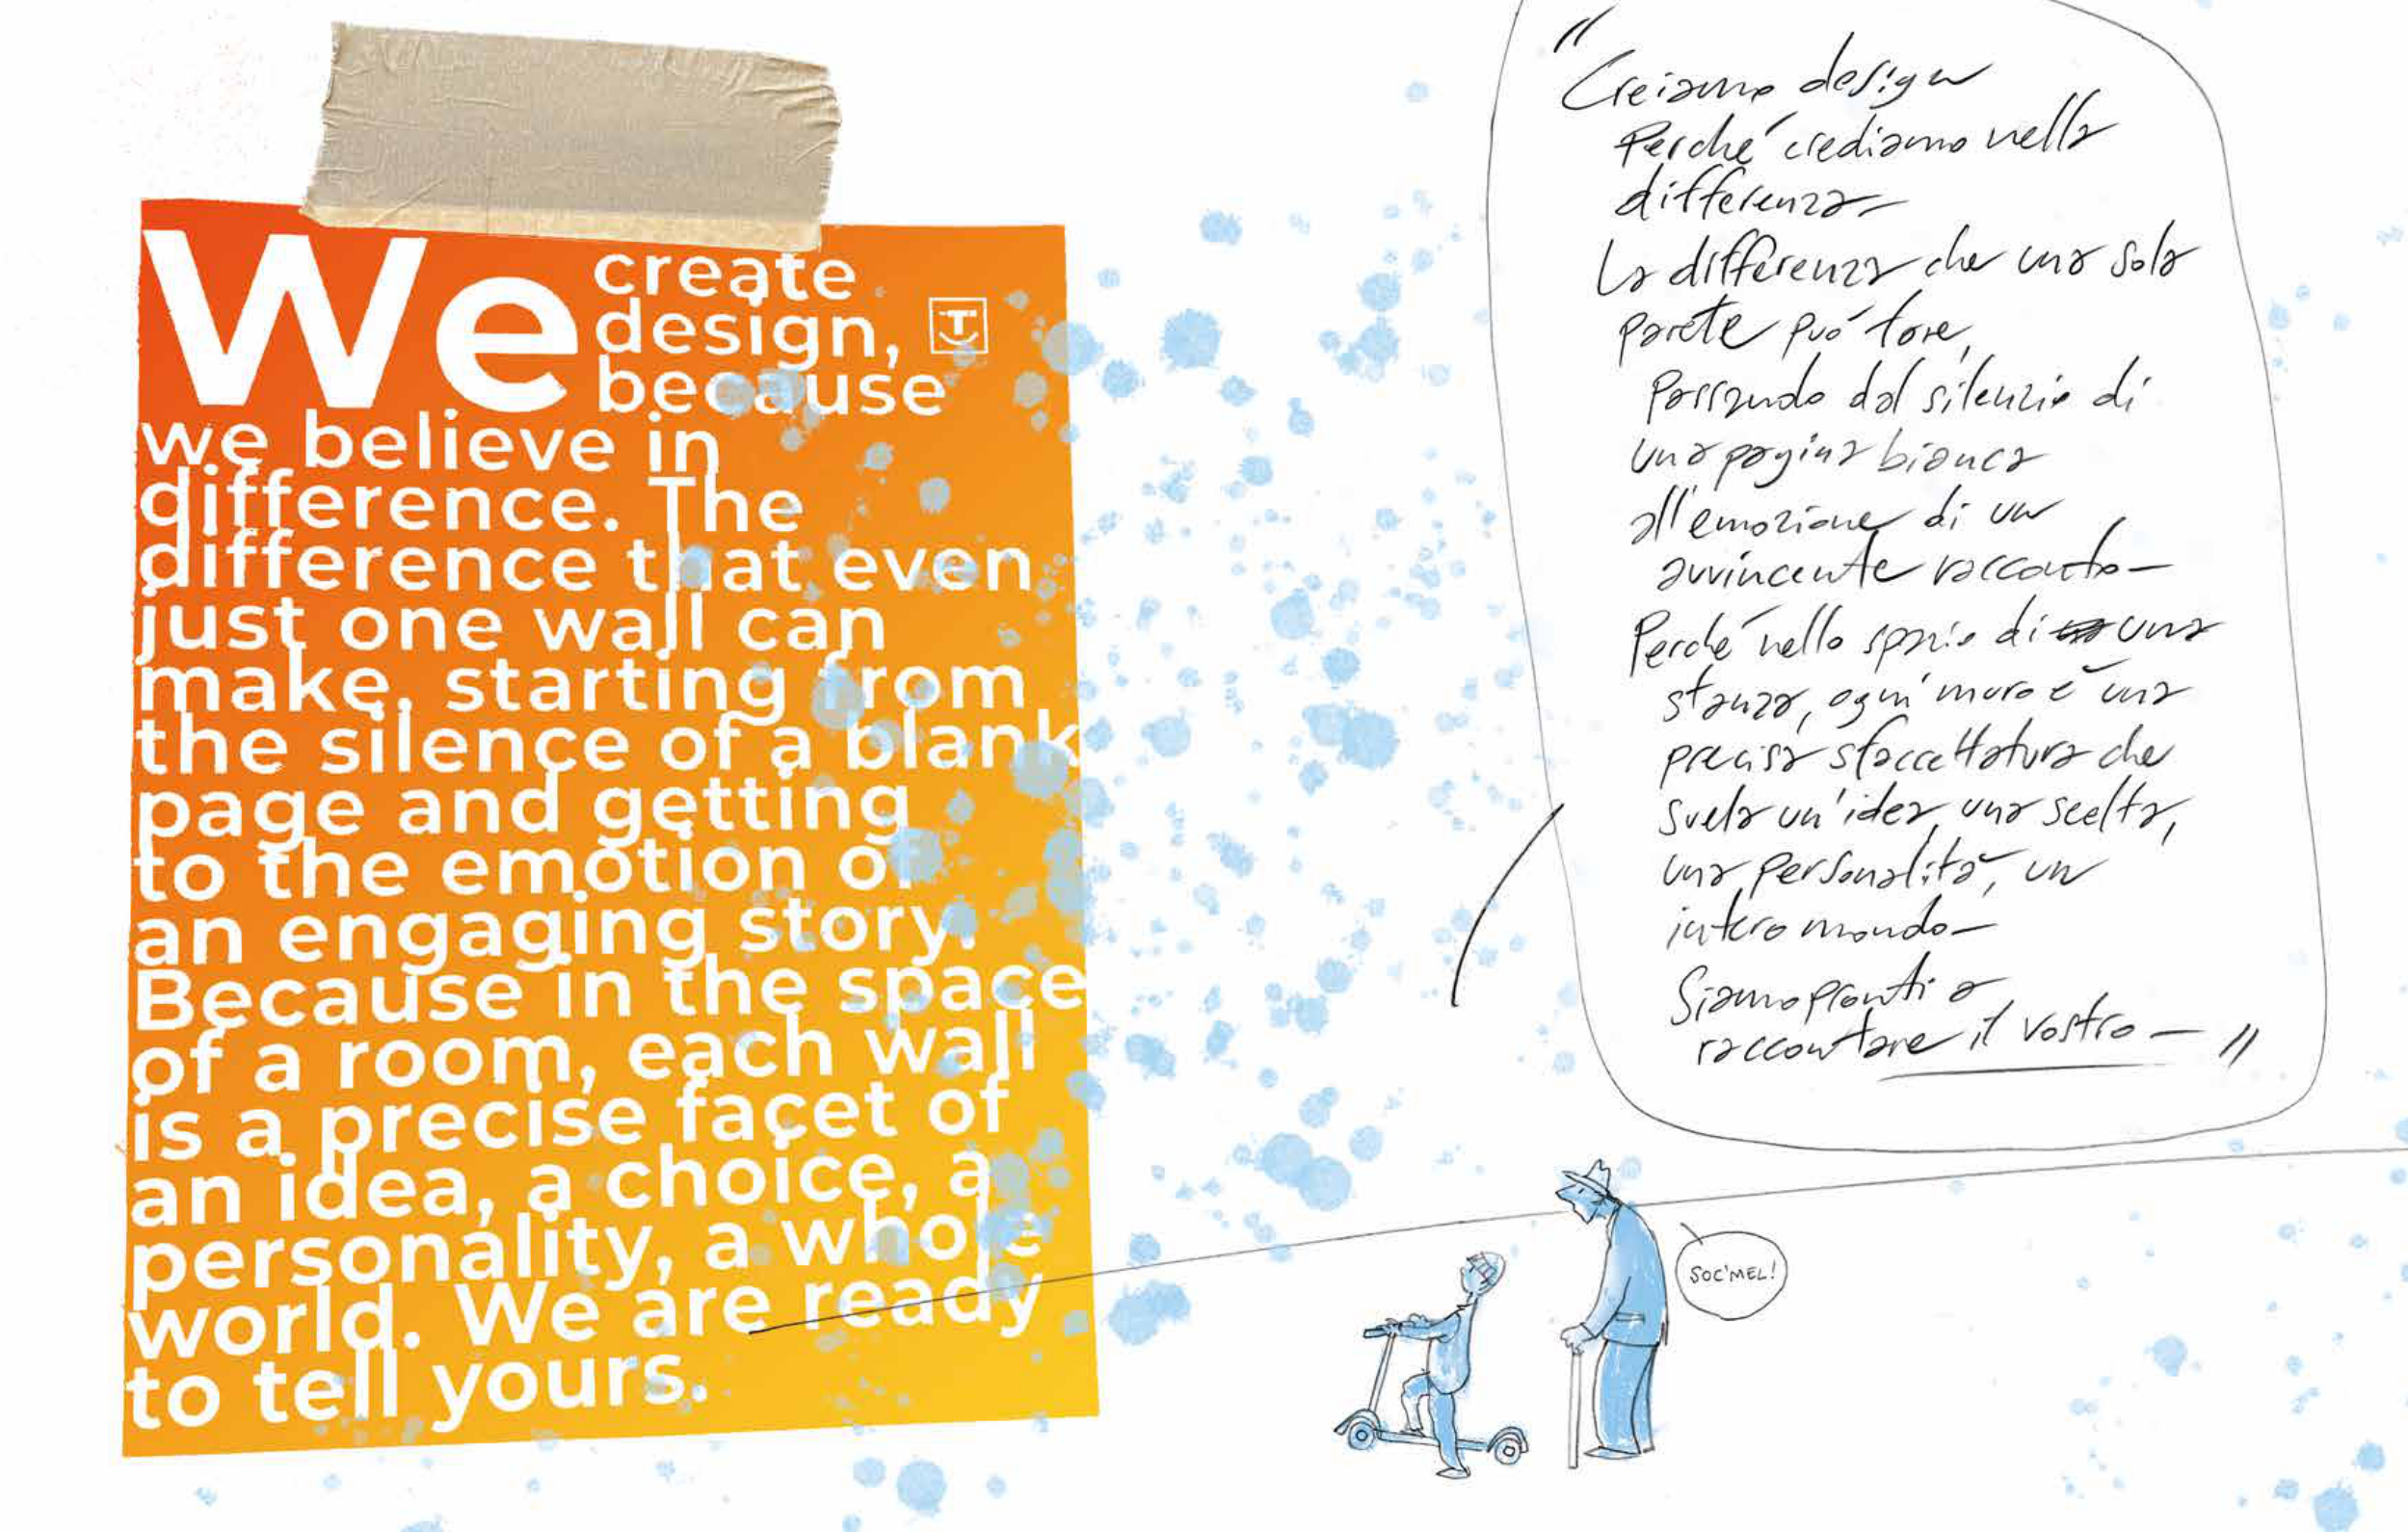 We create
design,
because
we believe in
difference. The
difference that even
just one wall can
make, starting from
the silence of a blank
page and getting
to the emotion of
an engaging story.
Because in the space
of a room, each wall
is a precise facet of
an idea, a choice, a
personality, a whole
world. We are ready
to tell yours.
T
"Creiamo design
Perché crediamo nella
differenza
La differenza che una sola
parete può fare,
Passando dal silenzio di
una pagina bianca
all'emozione di un
avvincente racconto-
Perché nello spazio di una
stanza, ogni muro è una
precisa sfaccettatura che
svela un'idea, una scelta,
una personalità, un
intero mondo-
Siamo pronti a
raccontare il vostro-"
SOC'MEL!